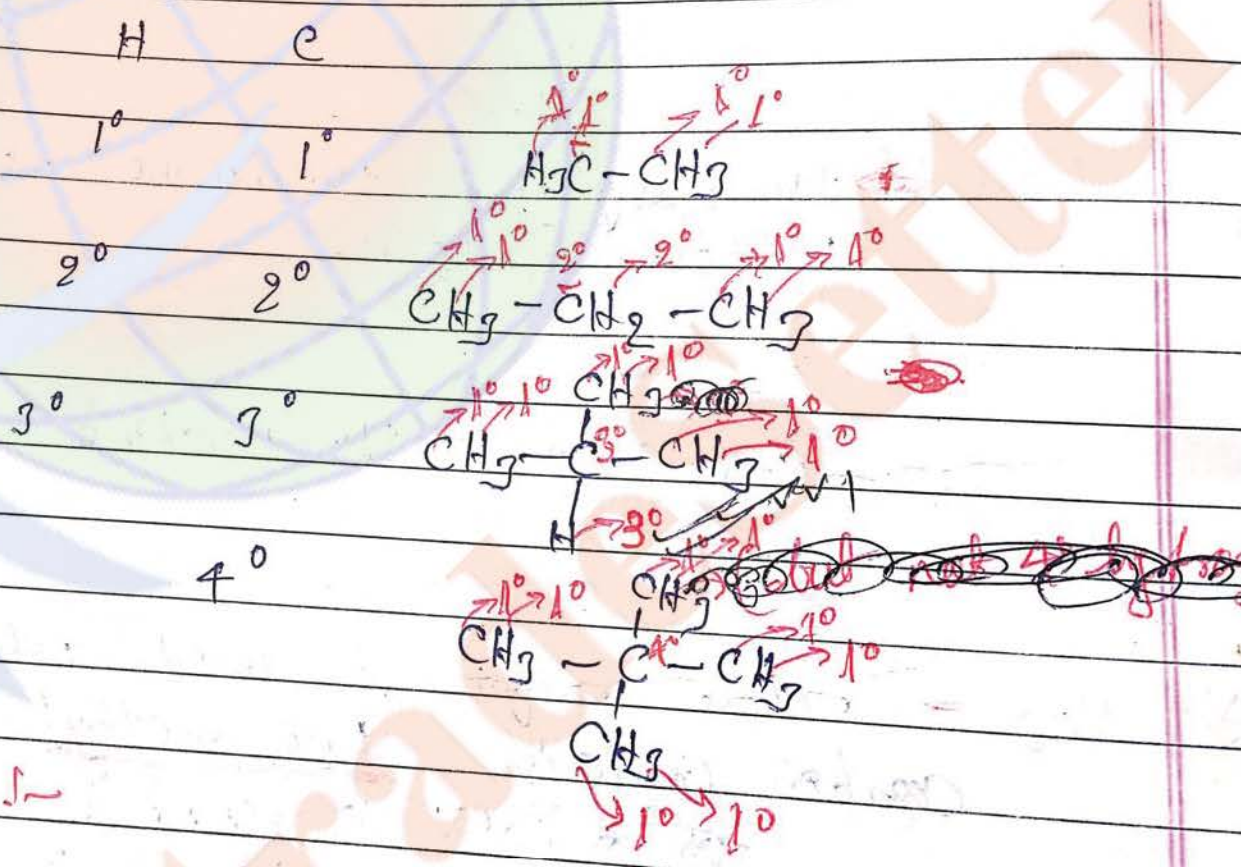 H C
1° 1°
1° 1° 1° 1°
H3C - CH3
1° 1° 2° 2° 1° 1°
2° 2° CH3 - CH2 - CH3
1° 1°
CH3
3° 3° 1° 1° 1°
CH3 - C 3° - CH3 1°
H 3°
1° 1°
4° CH3
1° 1° 1°
CH3 - C 4° - CH3 1°
CH3
1° 1°